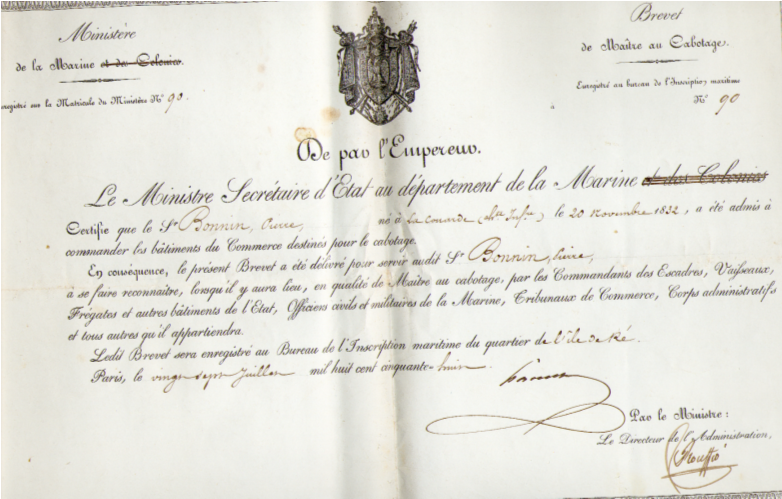 Ministère
de la Marine et des Colonies.
enregistré sur la Matricule du Ministère N° 90.
Brevet
de Maître au Cabotage.
Enregistré au bureau de l'Inscription maritime
à N° 90
De par l'Empereur.
Le Ministre Secrétaire d'Etat au département de la Marine et des Colonies
Certifie que le Sr Bonnin, Pierre, né à la Couarde (Chte Infre) le 20 novembre 1832, a été admis à
commander les bâtiments du Commerce destinés pour le cabotage.
En conséquence, le présent Brevet a été délivré pour servir audit Sr Bonnin, Pierre,
à se faire reconnaître, lorsqu'il y aura lieu, en qualité de Maître au cabotage, par les Commandants des Escadres, Vaisseaux,
Frégates et autres bâtiments de l'Etat, Officiers civils et militaires de la Marine, Tribunaux de Commerce, Corps administratifs
et tous autres qu'il appartiendra.
Ledit Brevet sera enregistré au Bureau de l'Inscription maritime du quartier de l'Ile de Ré.
Paris, le vingt sept Juillet mil huit cent cinquante-huit.
Par le Ministre:
Le Directeur de l'Administration,